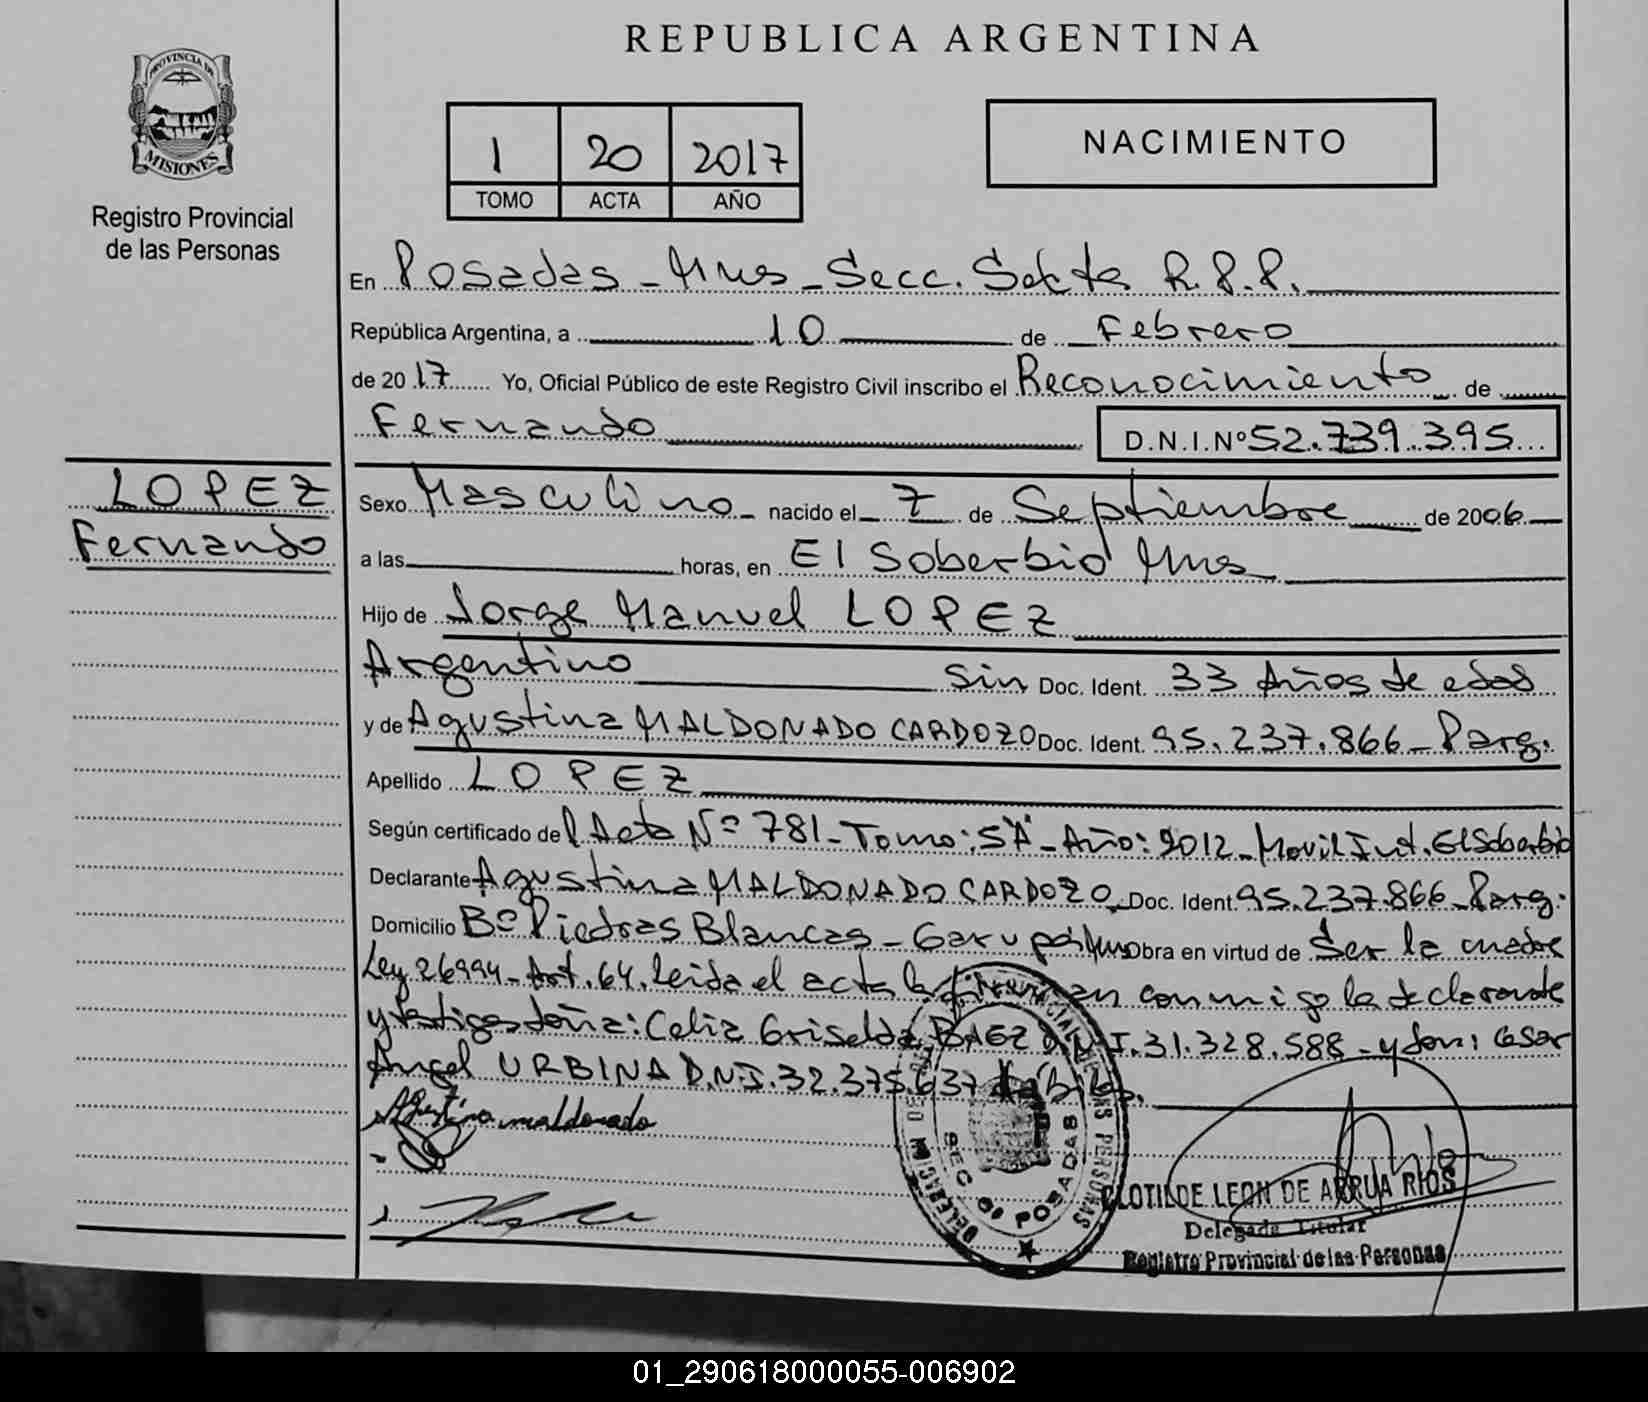 REPUBLICA ARGENTINA
PROVINCIA DE
MISIONES
Registro Provincial
de las Personas
1 20 2017
TOMO ACTA AÑO
NACIMIENTO
En Posadas - Mnes - Secc. Sexta R.P.P.
República Argentina, a 10 de Febrero
de 2017 Yo, Oficial Público de este Registro Civil inscribo el Reconocimiento de
Fernando D.N.I.Nº 52.739.395
LOPEZ
Fernando
Sexo Masculino nacido el 7 de Septiembre de 2006
a las horas, en El Soberbio Mnes
Hijo de Jorge Manuel LOPEZ
Argentino Sin Doc. Ident. 33 Años de edad
y de Agustina MALDONADO CARDOZO Doc. Ident. 95.237.866 - Parg.
Apellido LOPEZ
Según certificado del Acta Nº 781 - Tomo: 5"A" - Año: 2012 - Movil Int. El Soberbio
Declarante Agustina MALDONADO CARDOZO Doc. Ident 95.237.866 - Parg.
Domicilio Bº Piedras Blancas - Garupá Mnes Obra en virtud de Ser la madre
Ley 26994 - Art. 64. Leída el acta la firman conmigo la declarante
y testigos doña: Celia Griselda BAEZ D.N.I. 31.328.588 - y don: Cesar
Angel URBINA D.N.I. 32.375.637 habiles.
Agustina maldonado
DELEGACION
PROVINCIAL DE LAS PERSONAS
SECC 6ª POSADAS
CLOTILDE LEON DE ARRUA RIOS
Delegada Titular
Registro Provincial de las Personas
01_290618000055-006902